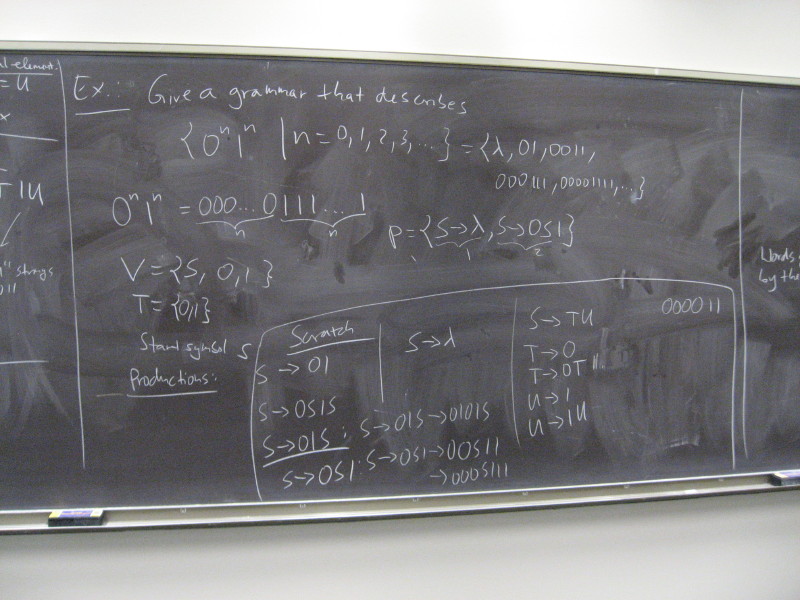 l element.
= U
x
T 1U
strings
011
Ex.: Give a grammar that describes
{0ⁿ1ⁿ | n = 0, 1, 2, 3, ...} = {λ, 01, 0011,
000111, 00001111, ...}
0ⁿ1ⁿ = 000...0 111...1
n n
P = {S→λ, S→0S1}
1 2
V = {S, 0, 1}
T = {0,1}
Start symbol S
Productions:
Scratch
S → 01
S→0S1S
S→01S : S→01S→0101S
S→0S1 : S→0S1→00S11
→000S111
S→λ
S→TU
000011
T→0
T→0T
U→1
U→1U
Words
by the